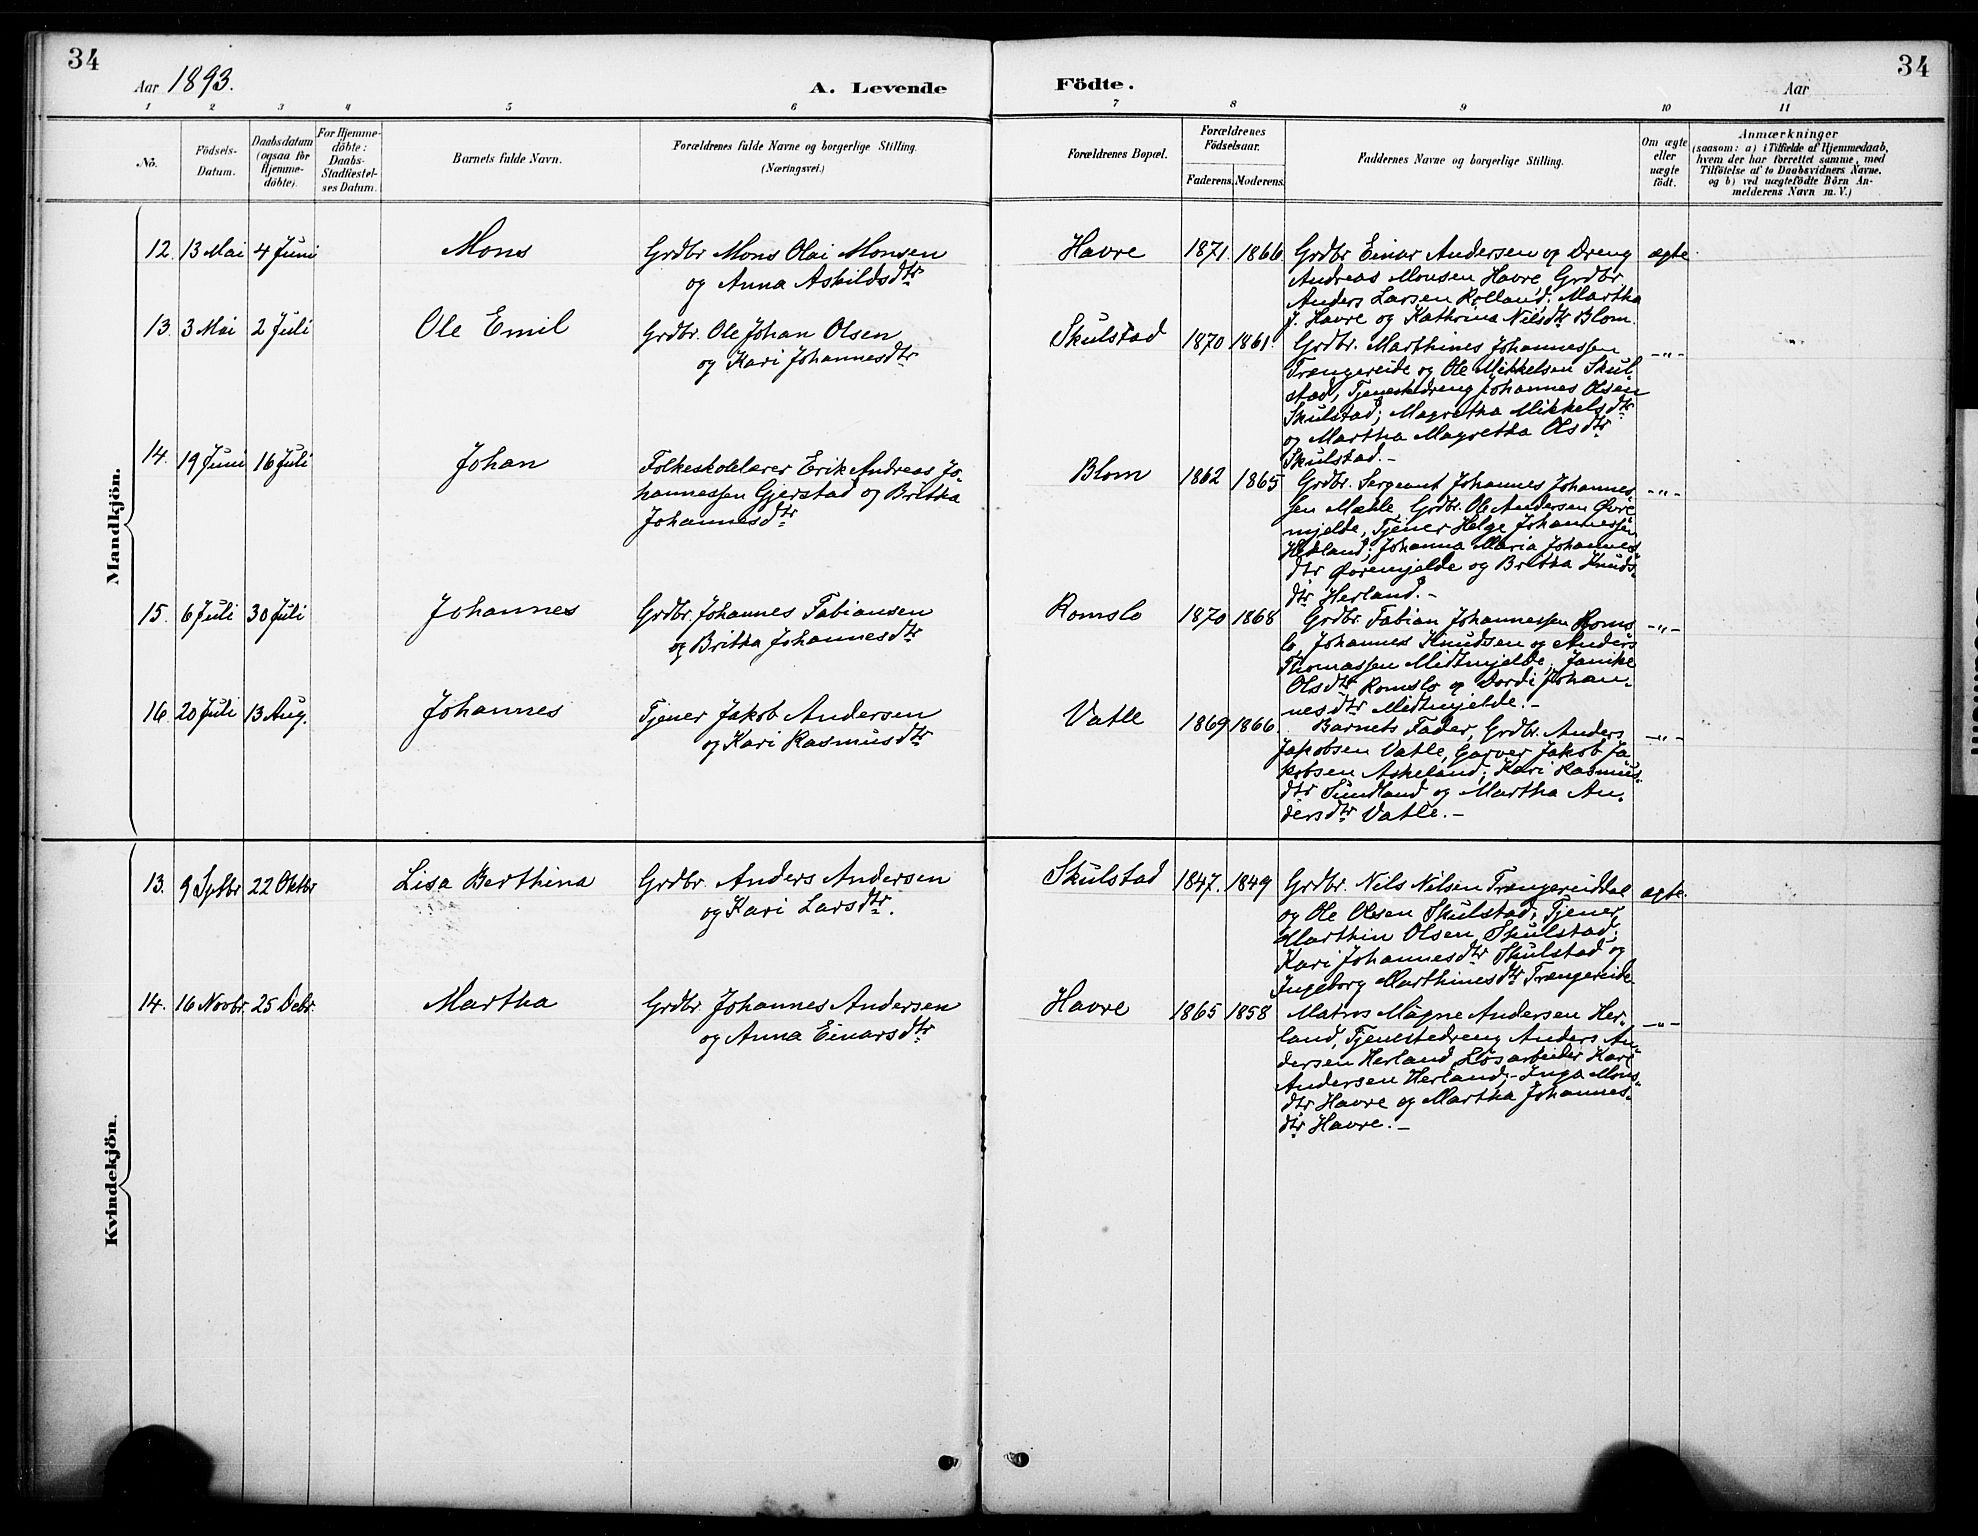 34
Aar 1893.
A. Levende
Födte.
Aar
34
1 2 3 4 5 6 7 8 9 10 11
No.
Födsels-
Datum.
Daabsdatum
(ogsaa for
Hjemme-
döbte).
For Hjemme-
döbte:
Daabs-
Stadfæstel-
ses Datum.
Barnets fulde Navn.
Forældrenes fulde Navne og borgerlige Stilling.
(Næringsvei.)
Forældrenes Bopæl.
Forældrenes
Födselsaar.
Faderens. Moderens.
Faddernes Navne og borgerlige Stilling.
Om ægte
eller
uægte
födt.
Anmærkninger
(saasom: a) i Tilfælde af Hjemmedaab,
hvem der har forrettet samme, med
Tilföielse af to Daabsvidners Navne,
og b) ved uægtefödte Börn An-
melderens Navn m. V.)
Mandkjön.
12. 13 Mai 4 Juni Mons
Grdbr Mons Olai Monsen
og Anna Askildsdtr
Havre 1871. 1866
Grdbr Einar Andersen og Dreng
Andreas Monsen Havre, Grdbr.
Anders Larsen Rolland; Martha
J. Havre og Kathrina Nilsdtr Blom.
ægte
13. 3 Mai 2 Juli Ole Emil
Grdbr. Ole Johan Olsen
og Kari Johannesdtr
Skulstad 1870 1861.
Grdbr. Marthines Johannessen
Trængereide og Ole Mikkelsen Skul-
stad, Tjenestedreng Johannes Olsen
Skulstad; Magretha Mikkelsdtr
og Martha Magretha Olsdtr
Skulstad.-
-"-
14. 19 Juni 16 Juli Johan
Folkeskolelærer Erik Andreas Jo-
hannessen Gjerstad og Britha
Johannesdtr
Blom 1862 1865
Grdbr. Sergeant Johannes Johannes-
sen Mæhle, Grdbr. Ole Andersen Øvre
mjelde, Tjener Helge Johannessen
Herland; Johanna Maria Johannes-
dtr Øvremjelde og Britha Knuds-
dtr Herland.-
-"-
15. 6 Juli 30 Juli Johannes
Grdbr. Johannes Fabiansen
og Britha Johannesdtr
Romslo 1870 1868
Grdbr. Fabian Johannessen Roms-
lo, Johannes Knudsen og Anders
Thomassen Midtmjelde; Janike
Olsdtr Romslo og Dordi Johan-
nesdtr Midtmjelde.-
-"-
16. 20 Juli 13 Aug. Johannes
Tjener Jakob Andersen
og Kari Rasmusdtr
Vatle 1869 1866.
Barnets Fader, Grdbr. Anders
Jakobsen Vatle, Garver Jakob Ja-
kobsen Askeland; Kari Rasmus-
dtr Sundland og Martha An-
dersdtr Vatle.-
-"-
Kvindekjön.
13. 9 Sptbr 22 Oktbr Lisa Berthina
Grdbr. Anders Andersen
og Kari Larsdtr.
Skulstad 1847. 1849
Grdbr. Nils Nilsen Trængereiddal
og Ole Olsen Skulstad, Tjener
Marthin Olsen Skulstad;
Kari Johannesdtr Skulstad og
Ingeborg Marthinesdtr Trængereide
ægte.
14. 16 Novbr. 25 Debr. Martha
Grdbr. Johannes Andersen
og Anna Einarsdtr
Havre 1865 1858
Matros Magne Andersen Her-
land, Tjenestedreng Anders An-
dersen Herland, Løsarbeider Kari
Andersen Herland,- Inga Mons-
dtr Havre og Martha Johannes-
dtr Havre.-
-"-